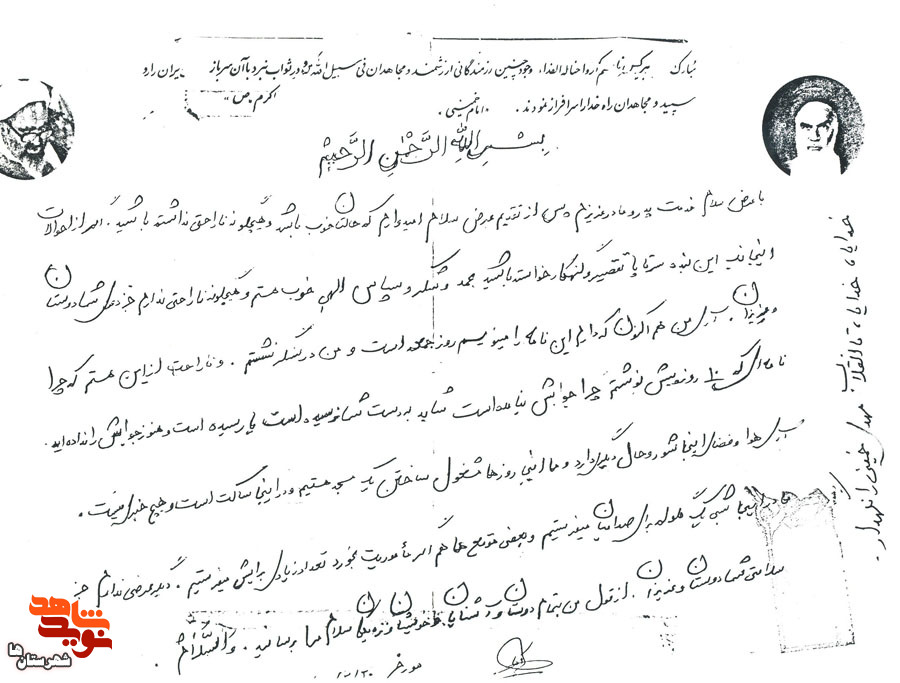 مبارک
وجود چنین رزمندگانی ارزشمند و مجاهدان فی سبیل الله که در ثواب نبرد با آن سرباز
اکرم «ص»
سپید و مجاهدان راه خدا را سرافراز نمودند.
«امام خمینی»
بِسْمِ اللهِ الرَّحْمٰنِ الرَّحیمْ
با عرض سلام خدمت پدر و مادر عزیزم پس از تقدیم عرض سلام امیدوارم که حالتان خوب باشد و هیچگونه ناراحتی نداشته باشید. اگر از احوالات
اینجانب این بنده سرتا پا تقصیر و گنهکار خواسته باشید بحمد و شکر و سپاس الهی خوب هستم و هیچگونه ناراحتی ندارم جز دوری شما دوستان
و عزیزان. باری من هم اکنون که دارم این نامه را مینویسم روز جمعه است و من در سنگر نشستم. و ناراحت از این هستم که چرا
نامه‌ای که ۱۰ روز پیش نوشتم چرا جوابش نیامده است شاید به دست شما نرسیده است یا رسیده است و هنوز جوابش را نداده‌اید.
باری هوا و فضای اینجا شور و حال دیگری دارد و ما اینجا روزها مشغول ساختن یک مسجد هستیم و در اینجا ساکت است و هیچ خبری نیست.
ما در اینجا شبی یک گلوله برای صدامیان میفرستیم و بعضی موقع‌ها هم اگر مأموریت بخورد تعداد زیادی برایش میفرستیم. دیگر عرضی ندارم جز
سلامتی شما دوستان و عزیزان. از قول من بتمام دوستان و آشنایان و خویشان سلام مرا برسانید. والسّلام.
مورخ
خدایا، خدایا، تا انقلاب مهدی خمینی را نگهدار.
نوید شاهد
شهرستان‌ها